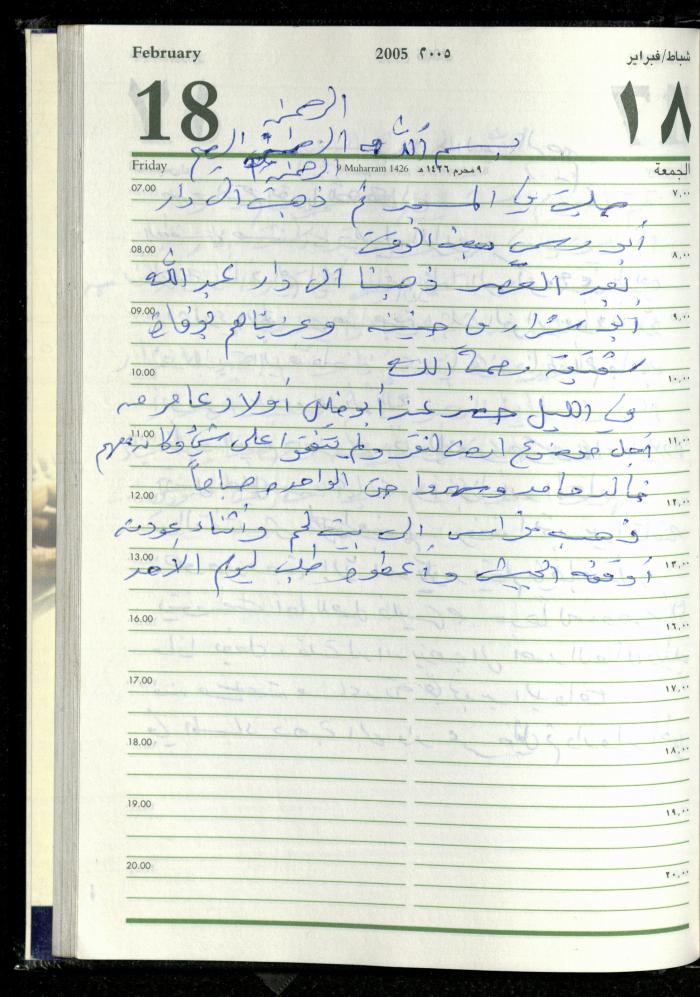 February 2005 ٢٠٠٥ شباط/فبراير
18 ١٨
الرحمن
بسم الله الرحيم
Friday الرحمن Muharram 1426 ٩ محرم ١٤٢٦ هـ الجمعة
07.00 صليت في المسجد ثم ذهبت الى دار ٧,٠٠
أبو
08.00 ٨,٠٠
بعد العصر ذهبنا الى دار عبد الله
09.00 ٩,٠٠
أبو في وعزيناهم بوفاة
شقيقة رحمها الله
10.00 ١٠,٠٠
في الليل حضر عند أبو أولاد عامر من
11.00 ١١,٠٠
أجل موضوع ولم يتفقوا على شيء وكان معهم
خالد حامد وسهروا حتى الواحدة صباحاً
12.00 ١٢,٠٠
ذهب فراس الى بيت لحم وأثناء عودته
13.00 ١٣,٠٠
أوقفه الجيش وأعطوه طلب ليوم الاحد
16.00 ١٦,٠٠
17.00 ١٧,٠٠
18.00 ١٨,٠٠
19.00 ١٩,٠٠
20.00 ٢٠,٠٠